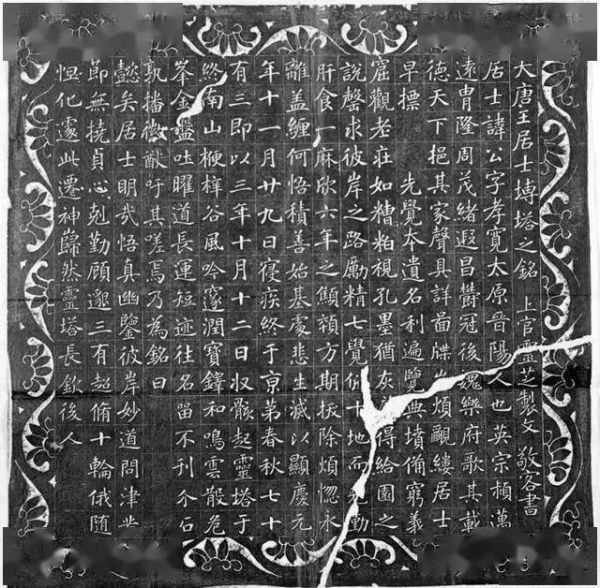 大唐王居士塼塔之銘 上官靈芝製文 敬客書
居士諱公字孝寬太原晉陽人也英宗穎邁
遠冑隆周茂緒遐昌欝冠後魏樂府歌其載
德天下挹其家聲具詳圖諜豈煩覼縷居士
早標 先覺本遺名利遍覽典墳備窮義
窟觀老莊如糟粕視孔墨猶灰得給園之
說罄求彼岸之路勵精七覺仰十地而勤
肝食一麻欣六年之顦顇方期拔除煩惱永
離盖纏何悟積善始基處悲生滅以顯慶元
年十一月廿九日寢疾終于京第春秋七十
有三即以三年十月十二日收骸起靈塔于
終南山楩梓谷風吟邃澗寶鐸和鳴雲散危
峯金盤吐曜道長運短迹往名留不刊介石
孰播徽猷吁其嗟焉乃為銘曰
懿矣居士明哉悟真幽鑒彼岸妙道問津世
節無撓貞心剋勤顧邈三有超脩十輪俄隨
怛化遽此遷神巋然靈塔長欽後人